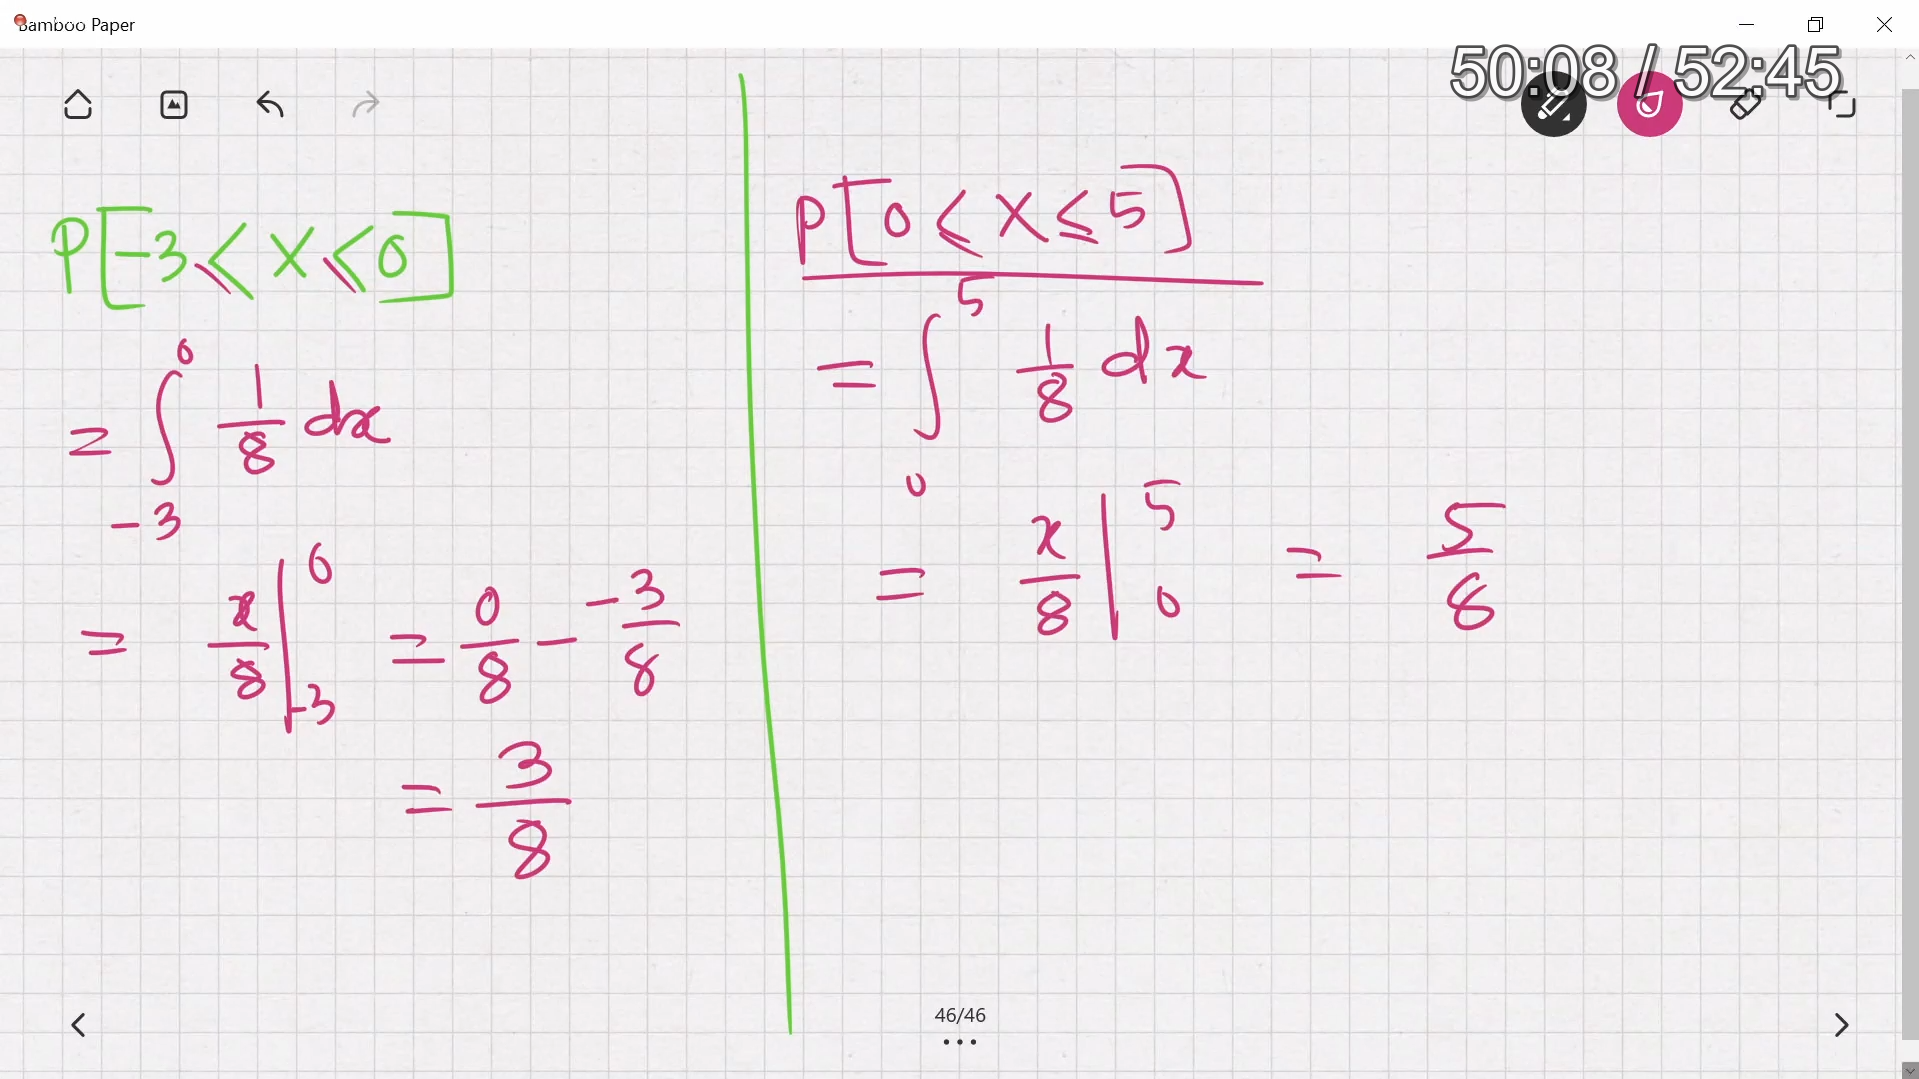 Bamboo Paper
50:08 / 52:45
P[-3 ≤ X ≤ 0]
= ∫_{-3}^{0} 1/8 dx
= x/8 |_{-3}^{0} = 0/8 - -3/8
= 3/8
P[0 ≤ X ≤ 5]
= ∫_{0}^{5} 1/8 dx
= x/8 |_{0}^{5} = 5/8
46/46